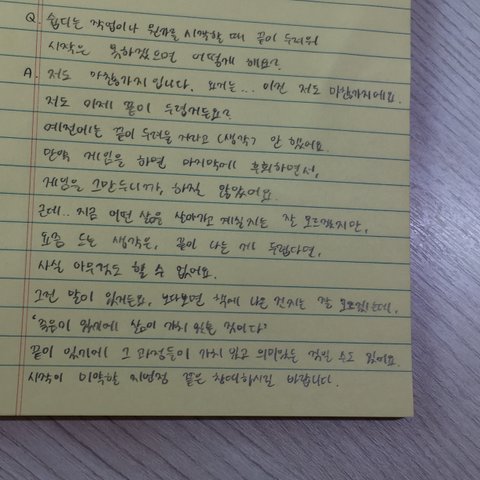 Q. 쉽다는 작업이나 뭔가를 시작할 때 끝이 두려워
시작은 못하겠으면 어떻게 해요?
A. 저도 마찬가지입니다. 요거는... 이건 저도 마찬가지에요.
저도 이제 끝이 두렵거든요?
예전에는 끝이 두려울 거라고 (생각) 안 했어요.
만약 게임을 하면 마지막에 후회하면서,
게임을 그만두니까, 하질 않았어요.
근데.. 지금 어떤 삶을 살아가고 계실지는 잘 모르겠지만,
요즘 드는 생각은, 끝이 나는 게 두렵다면,
사실 아무것도 할 수 없어요.
그런 말이 있거든요, 보다보면 책에 나온 건지는 잘 모르겠는데,
'죽음이 있기에 삶이 가치 있는 것이다'
끝이 있기에 그 과정들이 가치 있고 의미있는 것일 수도 있어요.
시작이 미약할 지언정 끝은 창대하시길 바랍니다.